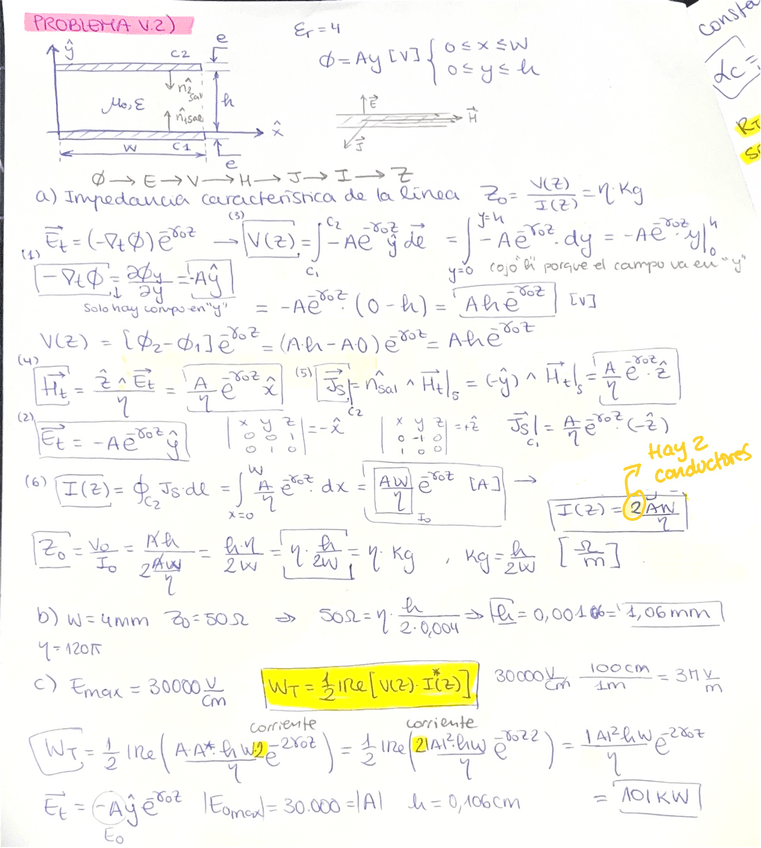 PROBLEMA V.2)
εr = 4
Φ = Ay [V] { 0 ≤ x ≤ W
0 ≤ y ≤ h
ŷ
C2
e
n̂2sal
μo, ε
n̂1sal
h
x̂
W
C1
e
E⃗
H⃗
J⃗
consta
αc =
RJ
Φ → E → V → H → J → I → Z
a) Impedancia característica de la línea Z0 = V(z)/I(z) = η·Kg
E⃗t = (-∇tΦ)e^-γ0z → (3) V(z) = ∫C1^C2 -Ae^-γ0z ŷ de⃗ = ∫y=0^y=h -Ae^-γ0z·dy = -Ae^-γ0z·y|0^h
(1) -∇tΦ = ∂Φy/∂y = -Aŷ
cojo "h" porque el campo va en "y"
Solo hay campo en "y"
= -Ae^-γ0z·(0-h) = Ahe^-γ0z [V]
V(z) = [Φ2-Φ1]e^-γ0z = (A·h-A·0)e^-γ0z = A·he^-γ0z
(4) H⃗t = ẑ∧E⃗t/η = A/η e^-γ0z x̂ (5) J⃗s|C2 = n̂sal ∧ H⃗t|s = (-ŷ) ∧ H⃗t|s = A/η e^-γ0z·ẑ
(2) E⃗t = -Ae^-γ0z ŷ
|x y z
0 0 1
0 1 0| = -x̂
|x y z
0 -1 0
1 0 0| = +ẑ
J⃗s|C1 = A/η e^-γ0z·(-ẑ)
Hay 2
conductores
(6) I(z) = ∮C2 Js·de = ∫x=0^W A/η e^-γ0z·dx = AW/η e^-γ0z [A] →
I0
I(z) = 2AW/η
Z0 = V0/I0 = Ah/(2AW/η) = h·η/2W = η·h/2W = η·Kg , Kg = h/2W [Ω/m]
b) W = 4mm Z0 = 50Ω ⇒ 50Ω = η·h/2·0,004 ⇒ h = 0,00106 = 1,06mm
η = 120π
c) Emax = 30000 V/cm WT = 1/2 Re[V(z)·I*(z)] 30000 V/cm 100cm/1m = 3M V/m
corriente corriente
WT = 1/2 Re(A·A*·hW2/η e^-2γ0z) = 1/2 Re(2|A|²·hW/η e^-γ0z2) = |A|²hW/η e^-2γ0z
E⃗t = -Aŷe^-γ0z |E0max| = 30.000 = |A| h = 0,106cm = 101KW
E0